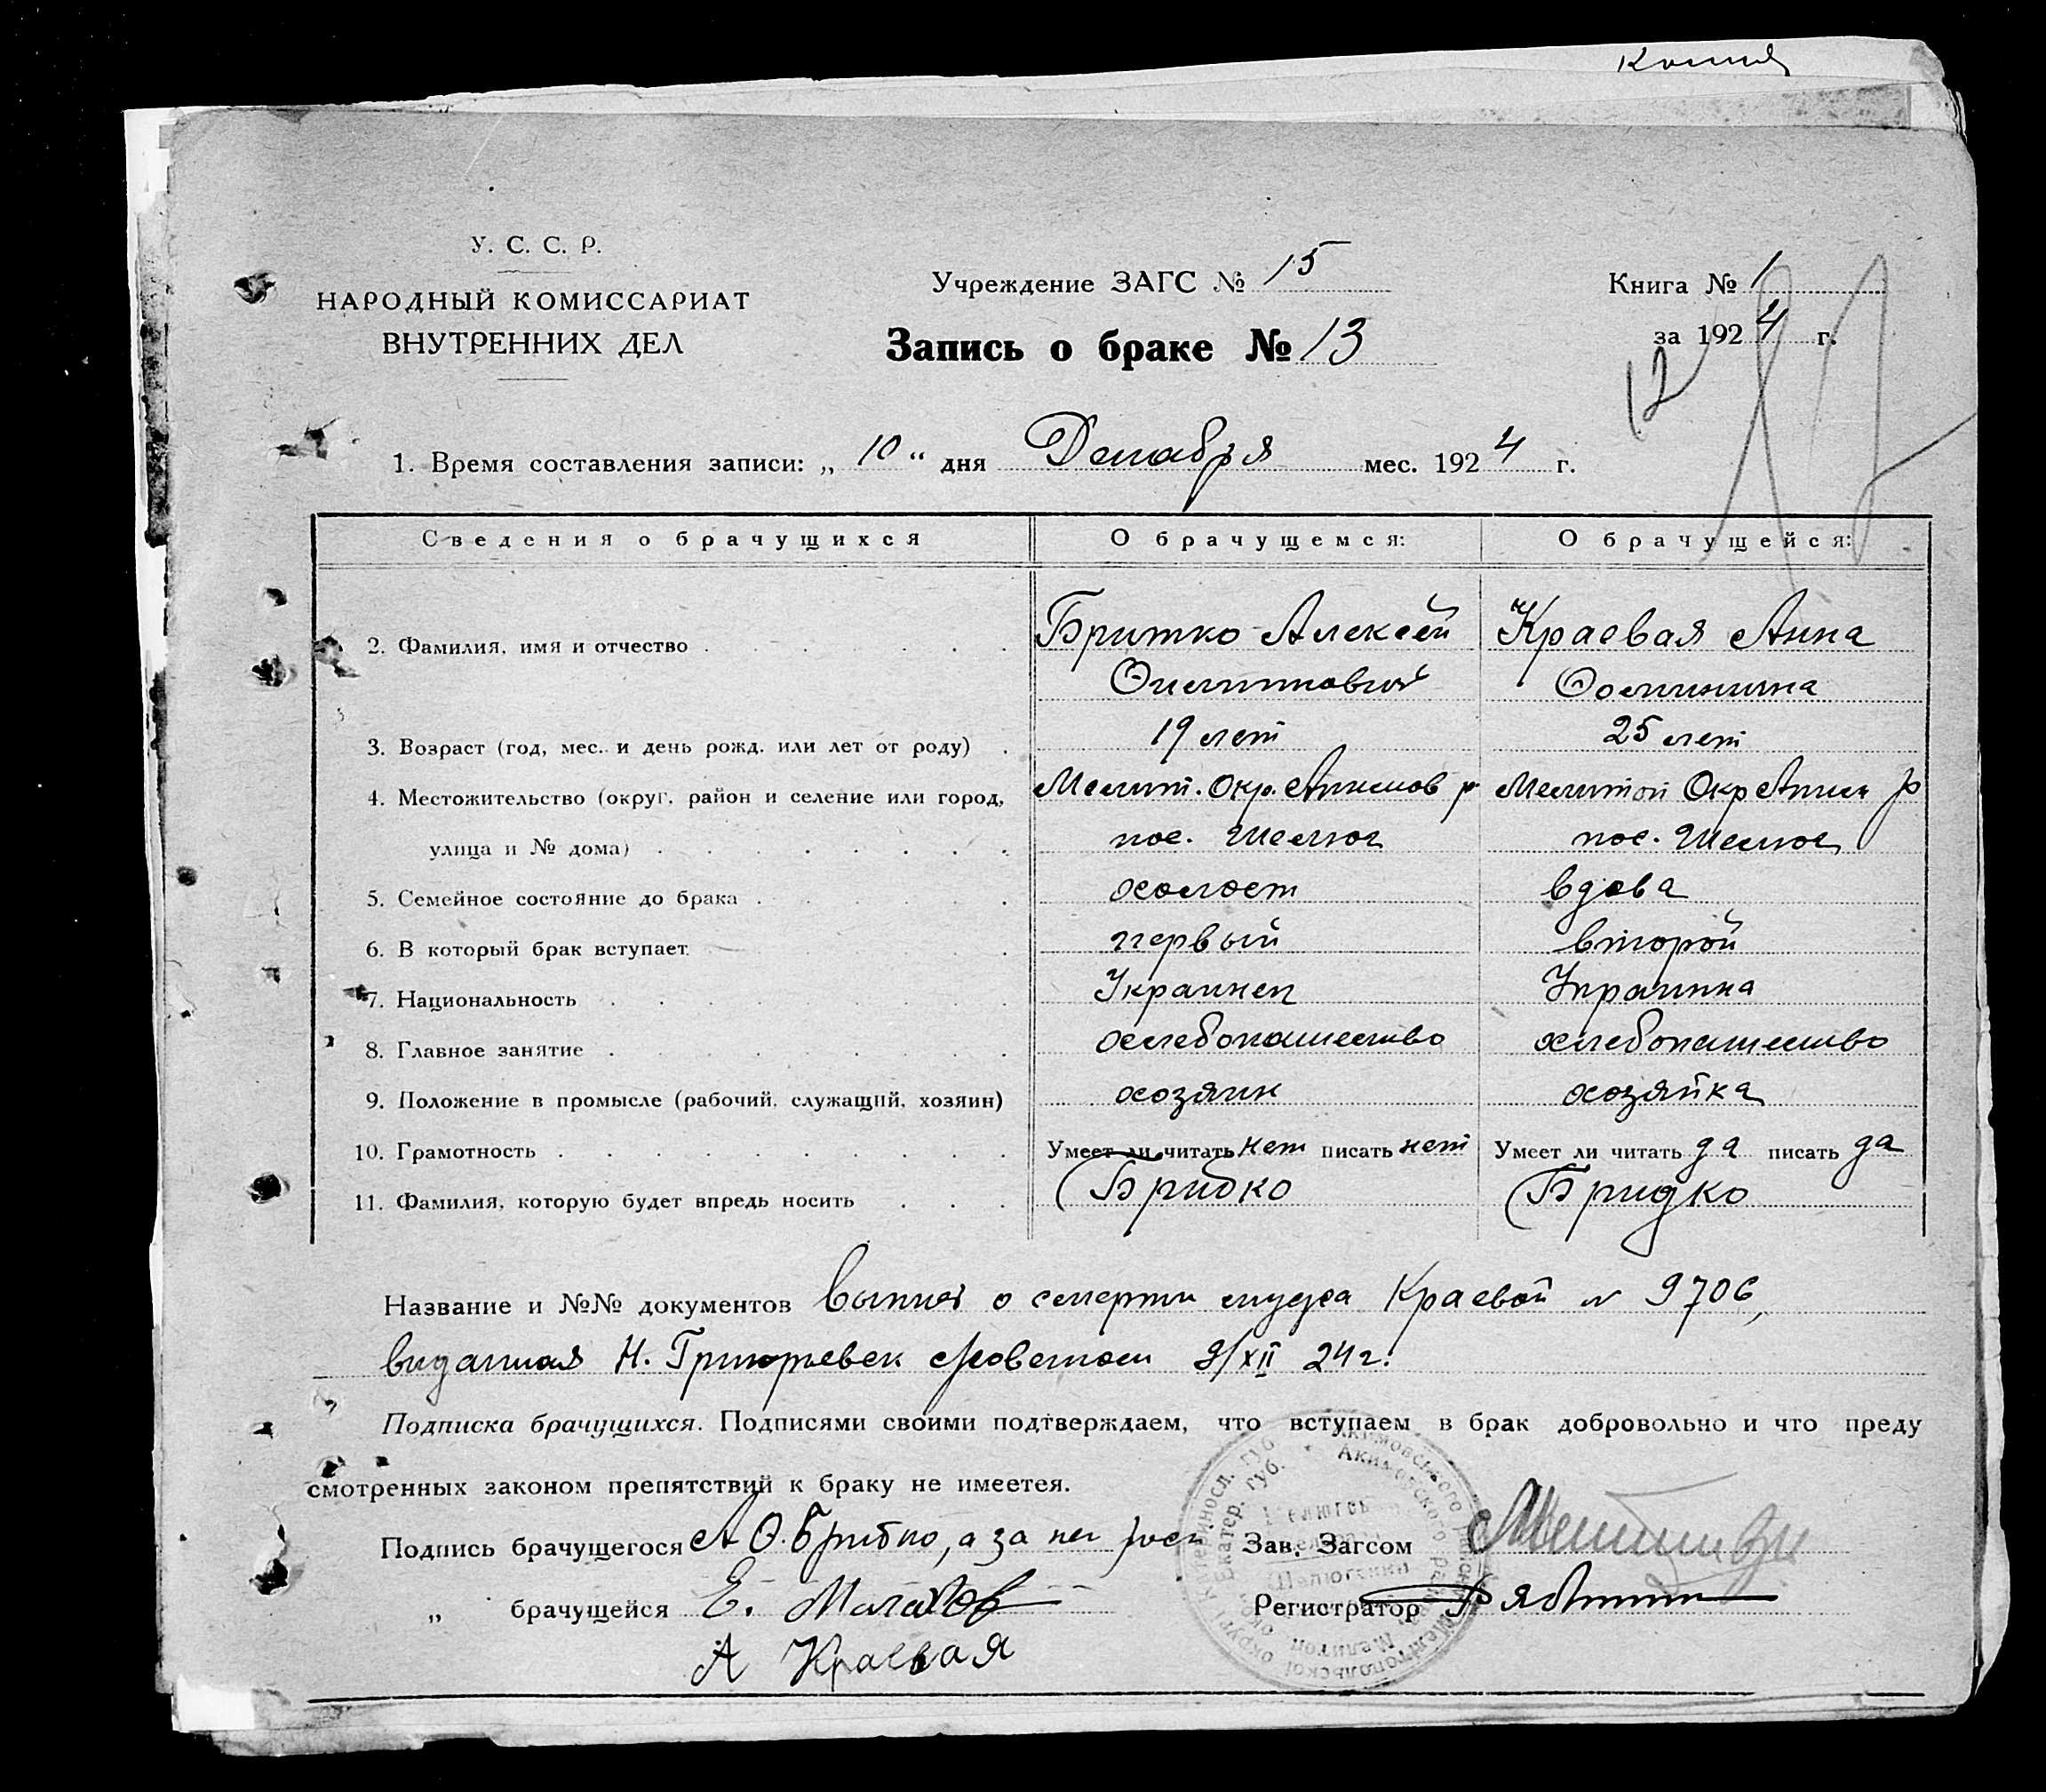 Копия
У. С. С. Р.
НАРОДНЫЙ КОМИССАРИАТ
ВНУТРЕННИХ ДЕЛ
Учреждение ЗАГС № 15
Запись о браке № 13
Книга № 1
за 1924 г.
12
1. Время составления записи: „ 10 “ дня Декабря мес. 1924 г.
Сведения о брачущихся О брачущемся: О брачущейся:
2. Фамилия, имя и отчество Бритко Алексей Краевая Анна
3. Возраст (год, мес. и день рожд. или лет от роду) 19 лет 25 лет
4. Местожительство (округ, район и селение или город, Мелит. Окр. Акимов р Мелитоп Окр Аким р
улица и № дома) пос. Шелюг пос. Шелюг
5. Семейное состояние до брака холост вдова
6. В который брак вступает первый второй
7. Национальность Украинец Украинка
8. Главное занятие хлебопашество хлебопашество
9. Положение в промысле (рабочий, служащий, хозяин) хозяин хозяйка
10. Грамотность Умеет ли читать нет писать нет Умеет ли читать да писать да
11. Фамилия, которую будет впредь носить Бридко Бридко
Название и №№ документов о смерти мужа Краевой № 9706,
виданная Н. Григорьевск с/советом 9/XII 24 г.
Подписка брачущихся. Подписями своими подтверждаем, что вступаем в брак добровольно и что преду
смотренных законом препятствий к браку не имеется.
Подпись брачущегося А Ф. Бритко, а за нег рос Зав. Загсом
„ брачущейся Е. Малахов Регистратор
А Краевая